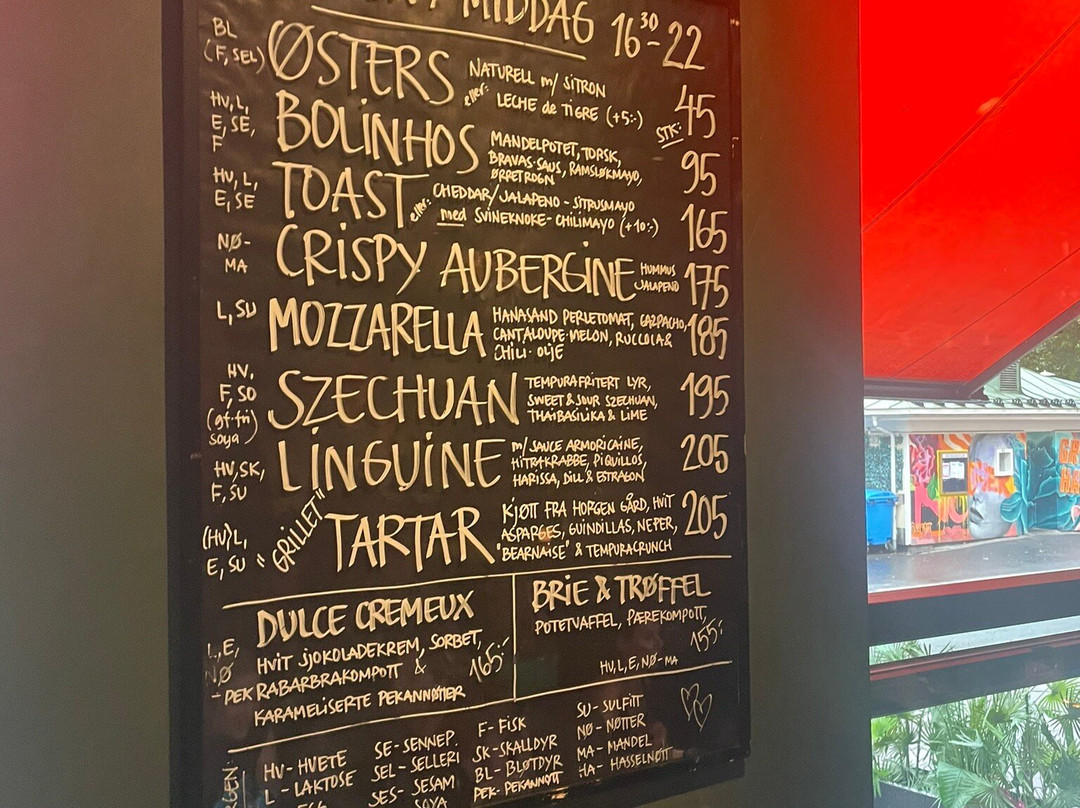 MIDDAG 16³⁰-22
BL
(F, SEL)
ØSTERS
NATURELL m/ SITRON
eller: LECHE de TIGRE (+5:-)
STK: 45
HV, L,
E, SE,
F
BOLINHOS
MANDELPOTET, TORSK,
BRAVAS-SAUS, RAMSLØKMAYO,
ØRRETROGN
95
HV, L,
E, SE
TOAST
CHEDDAR/JALAPENO - SITRUSMAYO
eller: med SVINEKNOKE - CHILIMAYO (+10:-)
165
NØ-
MA
CRISPY AUBERGINE
HUMMUS
JALAPENO
175
L, SU
MOZZARELLA
HANASAND PERLETOMAT, GAZPACHO,
CANTALOUPE-MELON, RUCCOLA &
CHILI-OLJE
185
HV,
F, SO
(gf-fri
soya)
SZECHUAN
TEMPURAFRITERT LYR,
SWEET & SOUR SZECHUAN,
THAIBASILIKA & LIME
195
HV, SK,
F, SU
LINGUINE
m/ SAUCE ARMORICAINE,
HITRAKRABBE, PIQUILLOS,
HARISSA, DILL & ESTRAGON
205
(HV) L,
E, SU
"GRILLET"
TARTAR
KJØTT FRA HORGEN GÅRD, HVIT
ASPARGES, GUINDILLAS, NEPER,
"BEARNAISE" & TEMPURACRUNCH
205
L, E,
NØ
-PEK
DULCE CREMEUX
HVIT SJOKOLADEKREM, SORBET,
RABARBRAKOMPOTT &
KARAMELISERTE PEKANNØTTER
165:-
BRIE & TRØFFEL
POTETVAFFEL, PÆREKOMPOTT,
155:-
HV, L, E, NØ-MA
HV - HVETE
L - LAKTOSE
SE - SENNEP
SEL - SELLERI
SES - SESAM
SOYA
F - FISK
SK - SKALLDYR
BL - BLØTDYR
PEK - PEKANNØTT
SU - SULFITT
NØ - NØTTER
MA - MANDEL
HA - HASSELNØTT